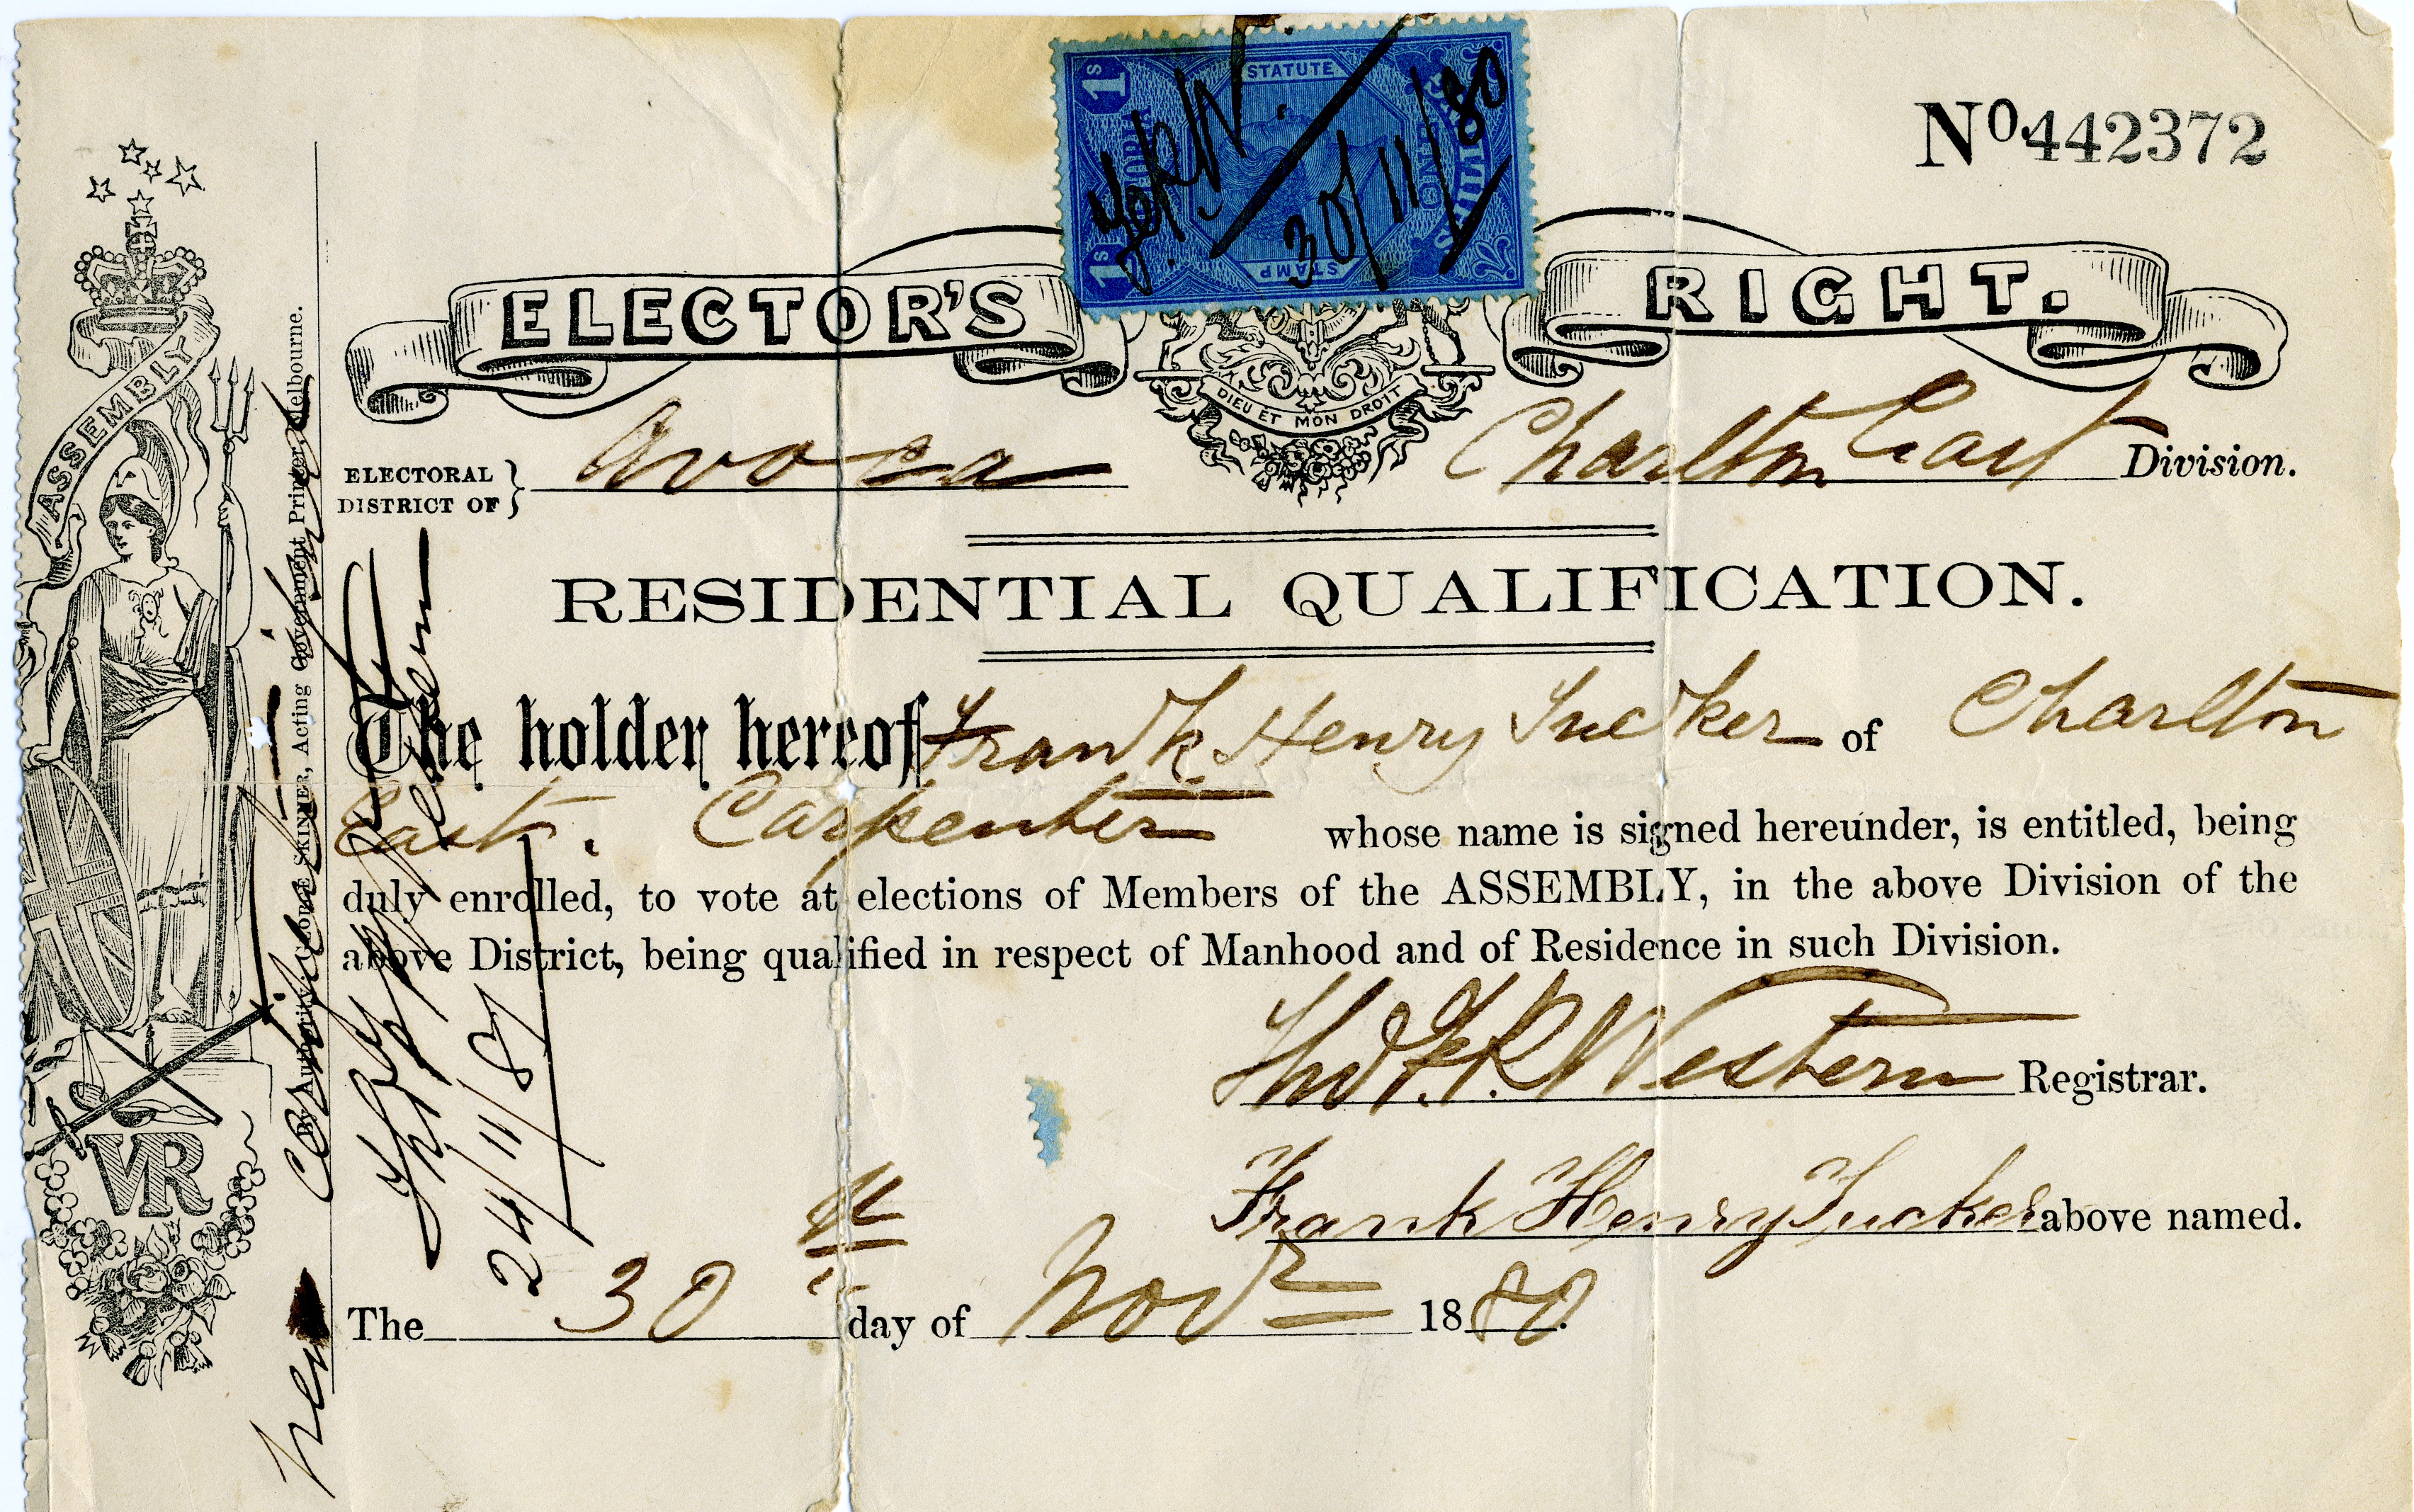 1s STATUTE ONE SHILLING
VICTORIA
1s STAMP
30/11/80
No. 442372
ELECTOR'S RIGHT.
DIEU ET MON DROIT
ELECTORAL DISTRICT OF } Avoca Charlton East Division.
RESIDENTIAL QUALIFICATION.
The holder hereof Frank Henry Tucker of Charlton
East. Carpenter whose name is signed hereunder, is entitled, being
duly enrolled, to vote at elections of Members of the ASSEMBLY, in the above Division of the
above District, being qualified in respect of Manhood and of Residence in such Division.
Thos F. R. Western Registrar.
Frank Henry Tucker above named.
The 30th day of Novr 1880.
ASSEMBLY
VR
By Authority: GEORGE SKINNER, Acting Government Printer, Melbourne.
New
24/11/87